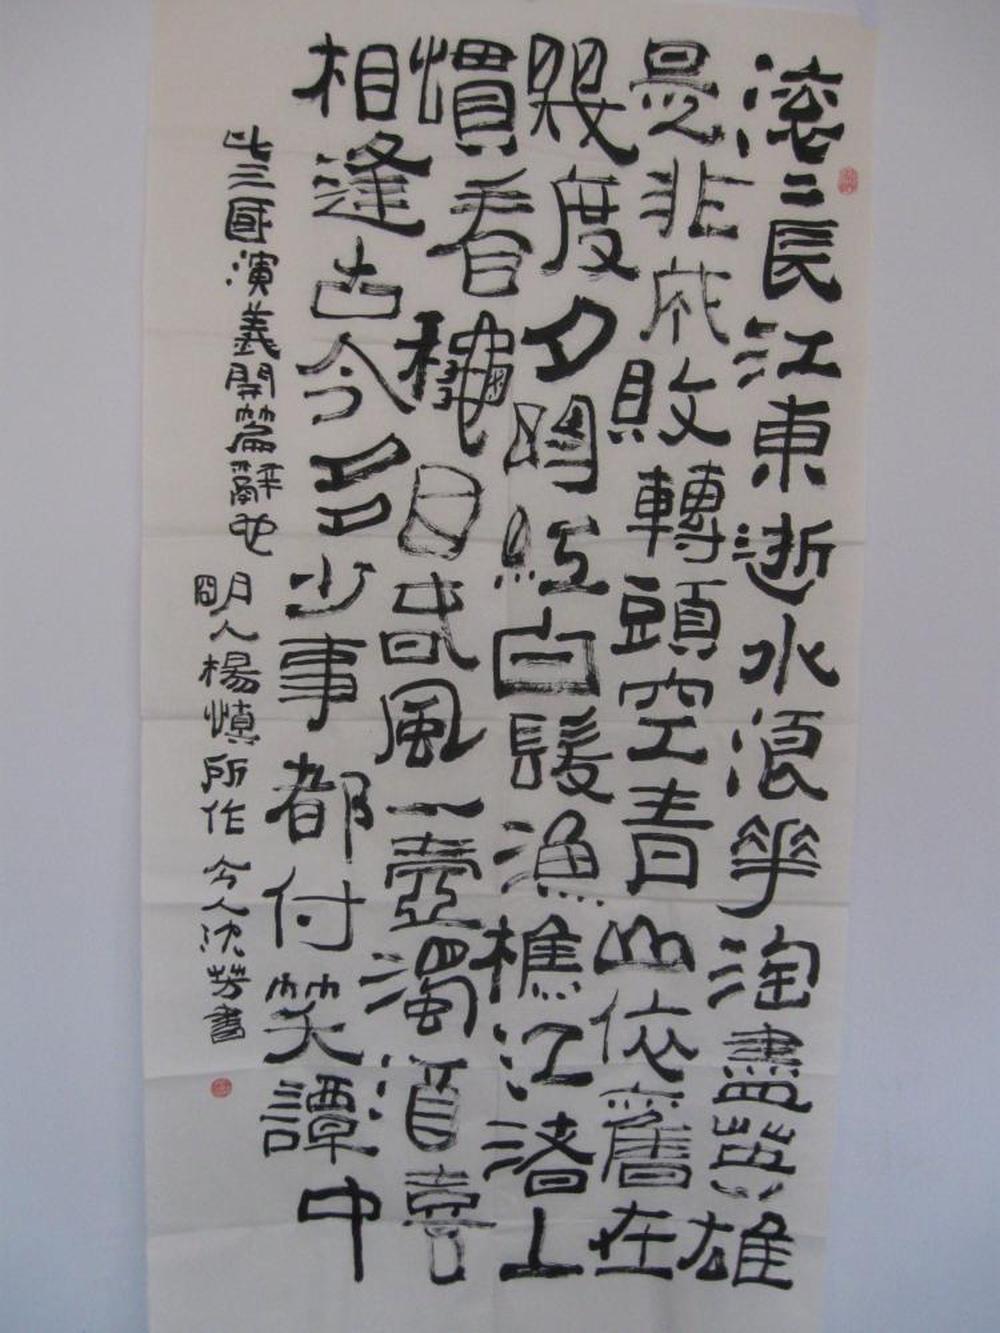 滚〻長江東逝水浪華淘盡英雄
是非成敗轉頭空青山依舊在
幾度夕陽紅白髮漁樵江渚上
慣看龝月春風一壺濁酒喜
相逢古今多少事都付笑譚中
此三國演義開篇辭也
朙人楊慎所作今人沈芳書